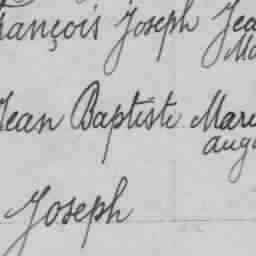 François Joseph Jea
Ma
Jean Baptiste Mari
augu
Joseph